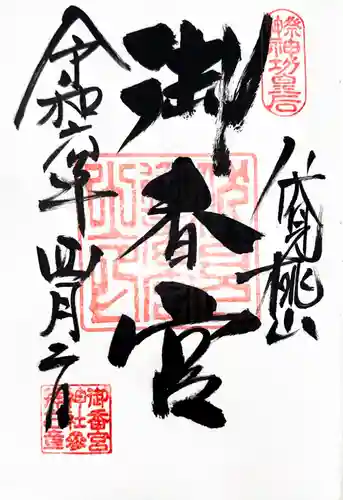 伏見桃山
御香宮
令和六年四月二日
祭神功皇后
御香宮
神社参
拝之章